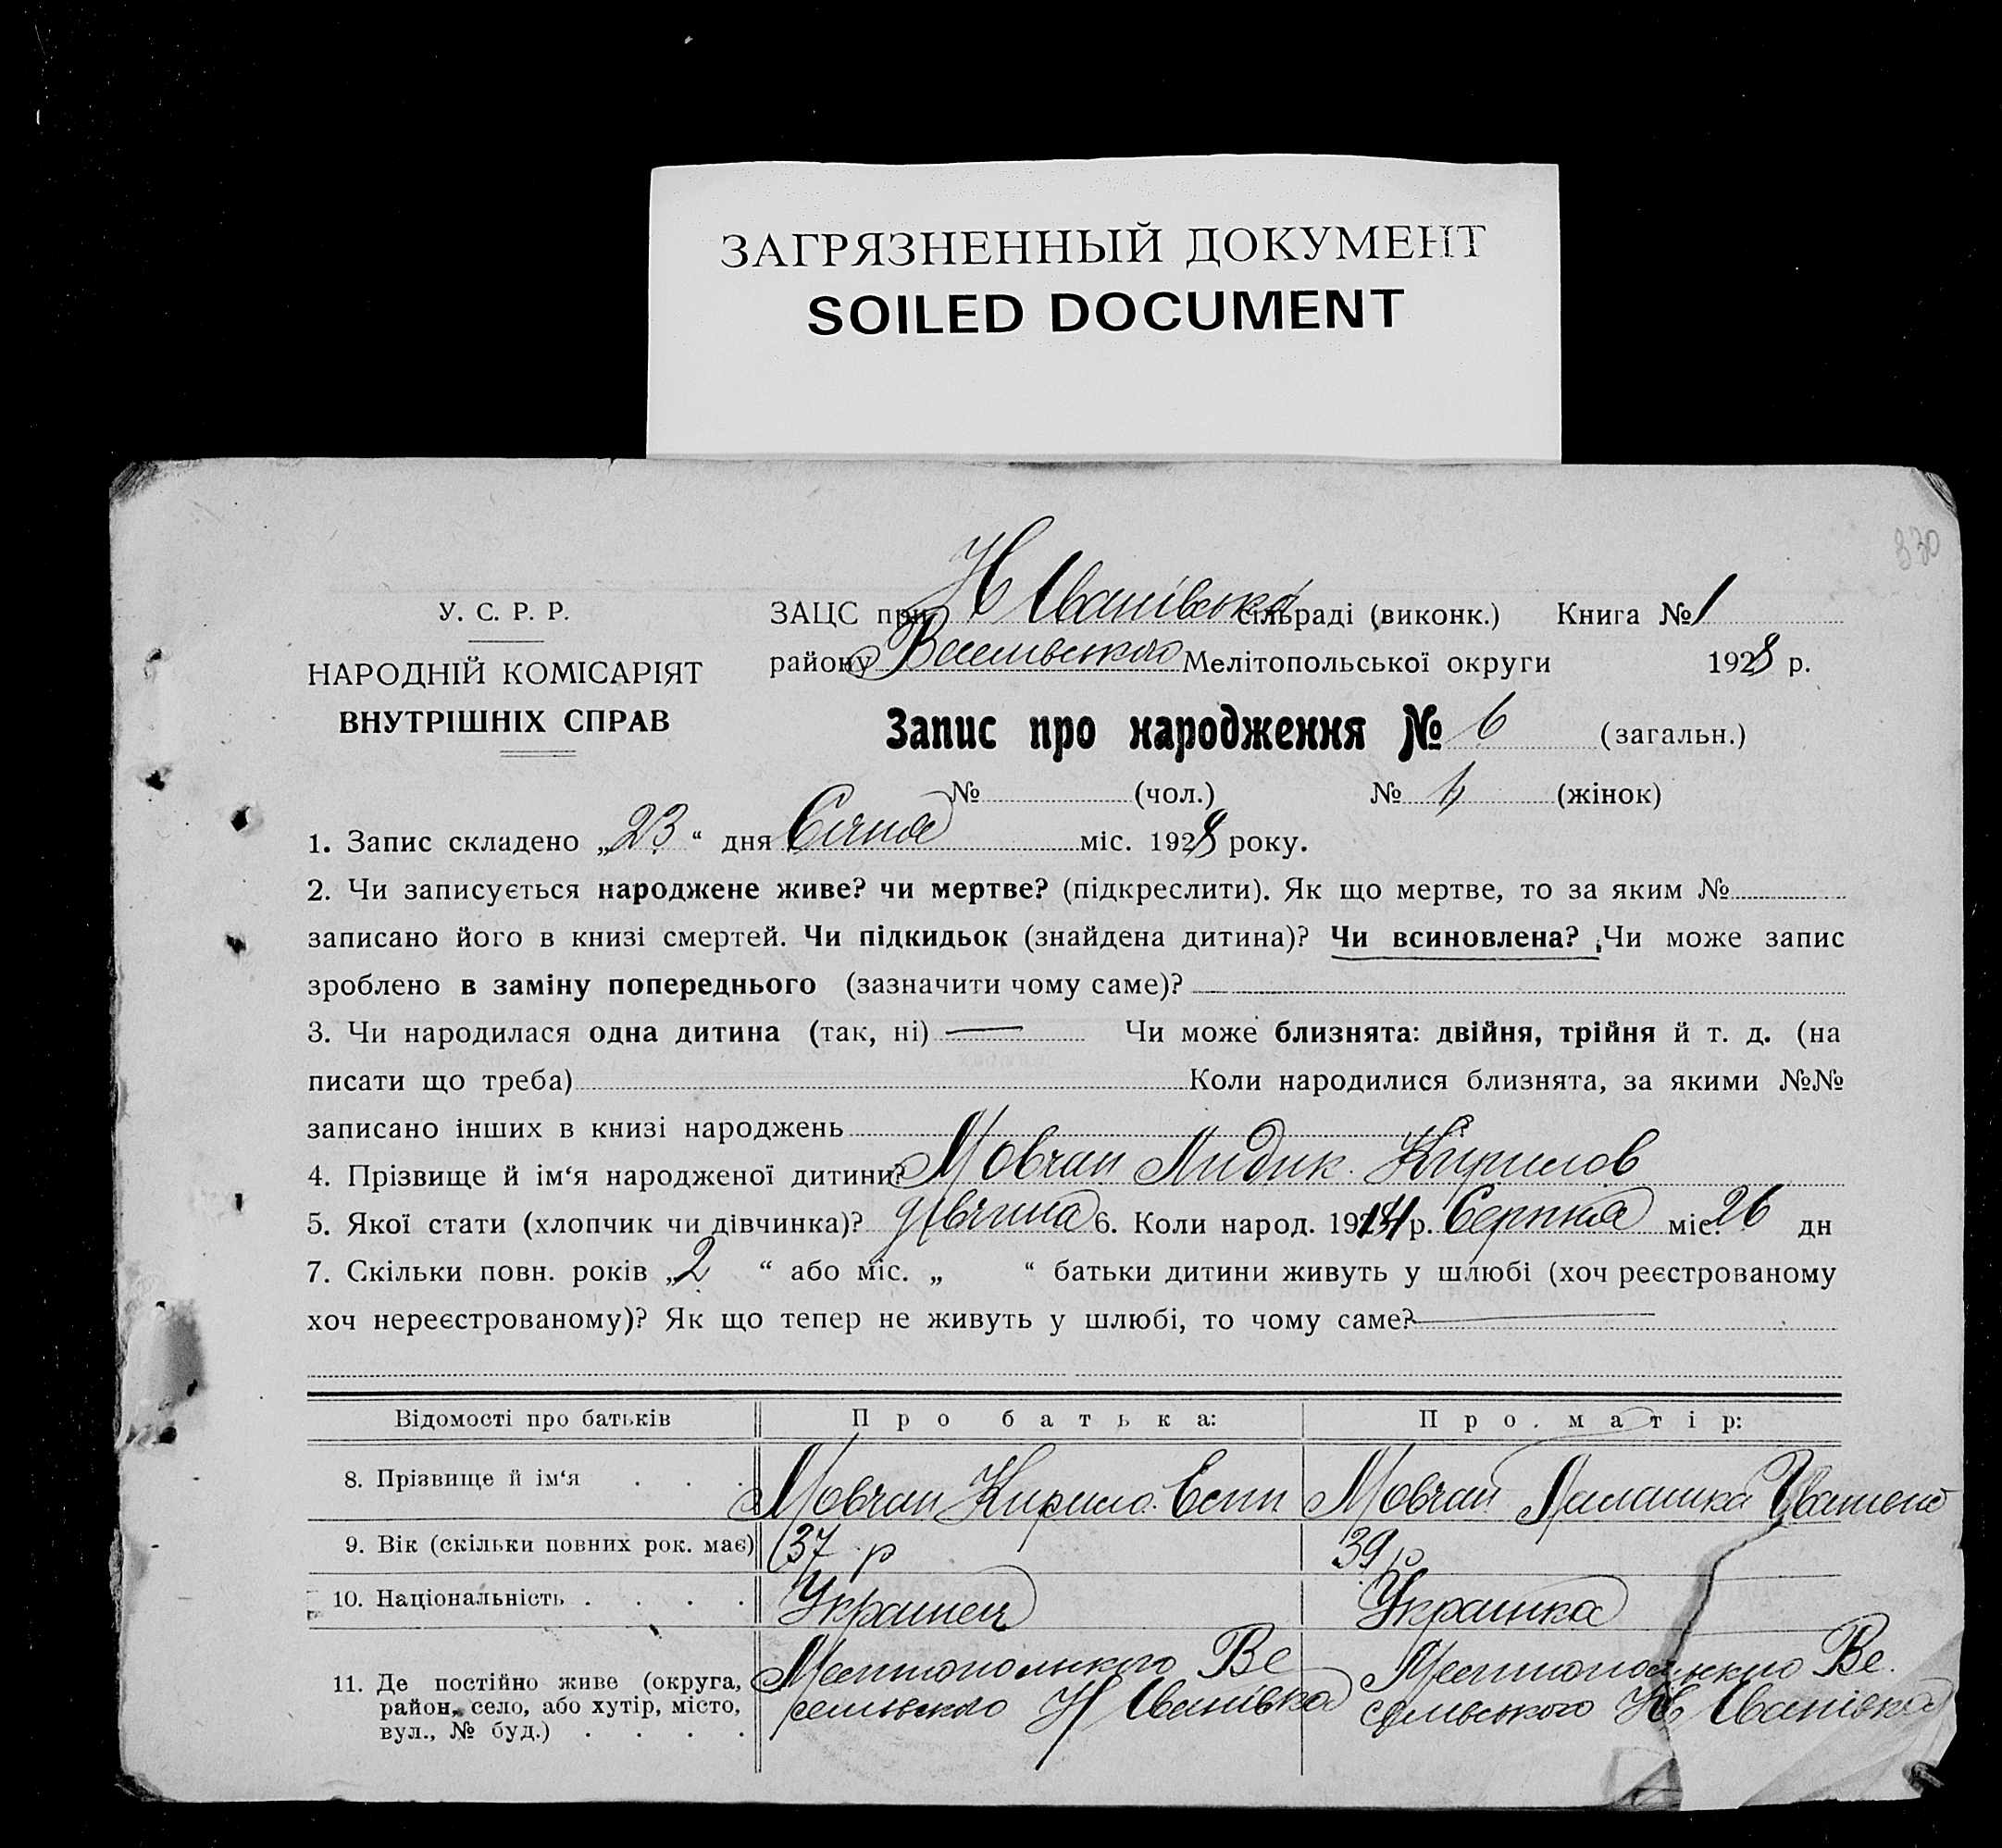 ЗАГРЯЗНЕННЫЙ ДОКУМЕНТ
SOILED DOCUMENT
330
У. С. Р. Р.
НАРОДНІЙ КОМІСАРІЯТ
ВНУТРІШНІХ СПРАВ
ЗАЦС при Н Іванівська сільраді (виконк.) Книга № 1
району Веселівського Мелітопольської округи 1928 р.
Запис про народження № 6 (загальн.)
№ (чол.) № (жінок)
1. Запис складено „23“ дня Січня міс. 1928 року.
2. Чи записується народжене живе? чи мертве? (підкреслити). Як що мертве, то за яким №
записано його в книзі смертей. Чи підкидьок (знайдена дитина)? Чи всиновлена? Чи може запис
зроблено в заміну попереднього (зазначити чому саме)?
3. Чи народилася одна дитина (так, ні) — Чи може близнята: двійня, трійня й т. д. (на
писати що треба) Коли народилися близнята, за якими №№
записано інших в книзі народжень
4. Прізвище й ім‘я народженої дитини? Мовчан Лидик. Кирилов
5. Якої стати (хлопчик чи дівчинка)? дівчина 6. Коли народ. 1914 р. Серпня міс. 26 дн
7. Скільки повн. років „2 “ або міс. „ “ батьки дитини живуть у шлюбі (хоч реєстрованому
хоч нереєстрованому)? Як що тепер не живуть у шлюбі, то чому саме? —
Відомості про батьків Про батька: Про матір:
8. Прізвище й ім‘я . . . Мовчан Кирило Мовчан
9. Вік (скільки повних рок. має) 37 р 39 р
10. Національність . . . . Украінец Украінка
11. Де постійно живе (округа, район, село, або хутір, місто, вул., № буд.) . . . .
Мелітопольского Ве
селівского Н Іванівка
Мелітопольского Ве.
селівського Н Іванівка